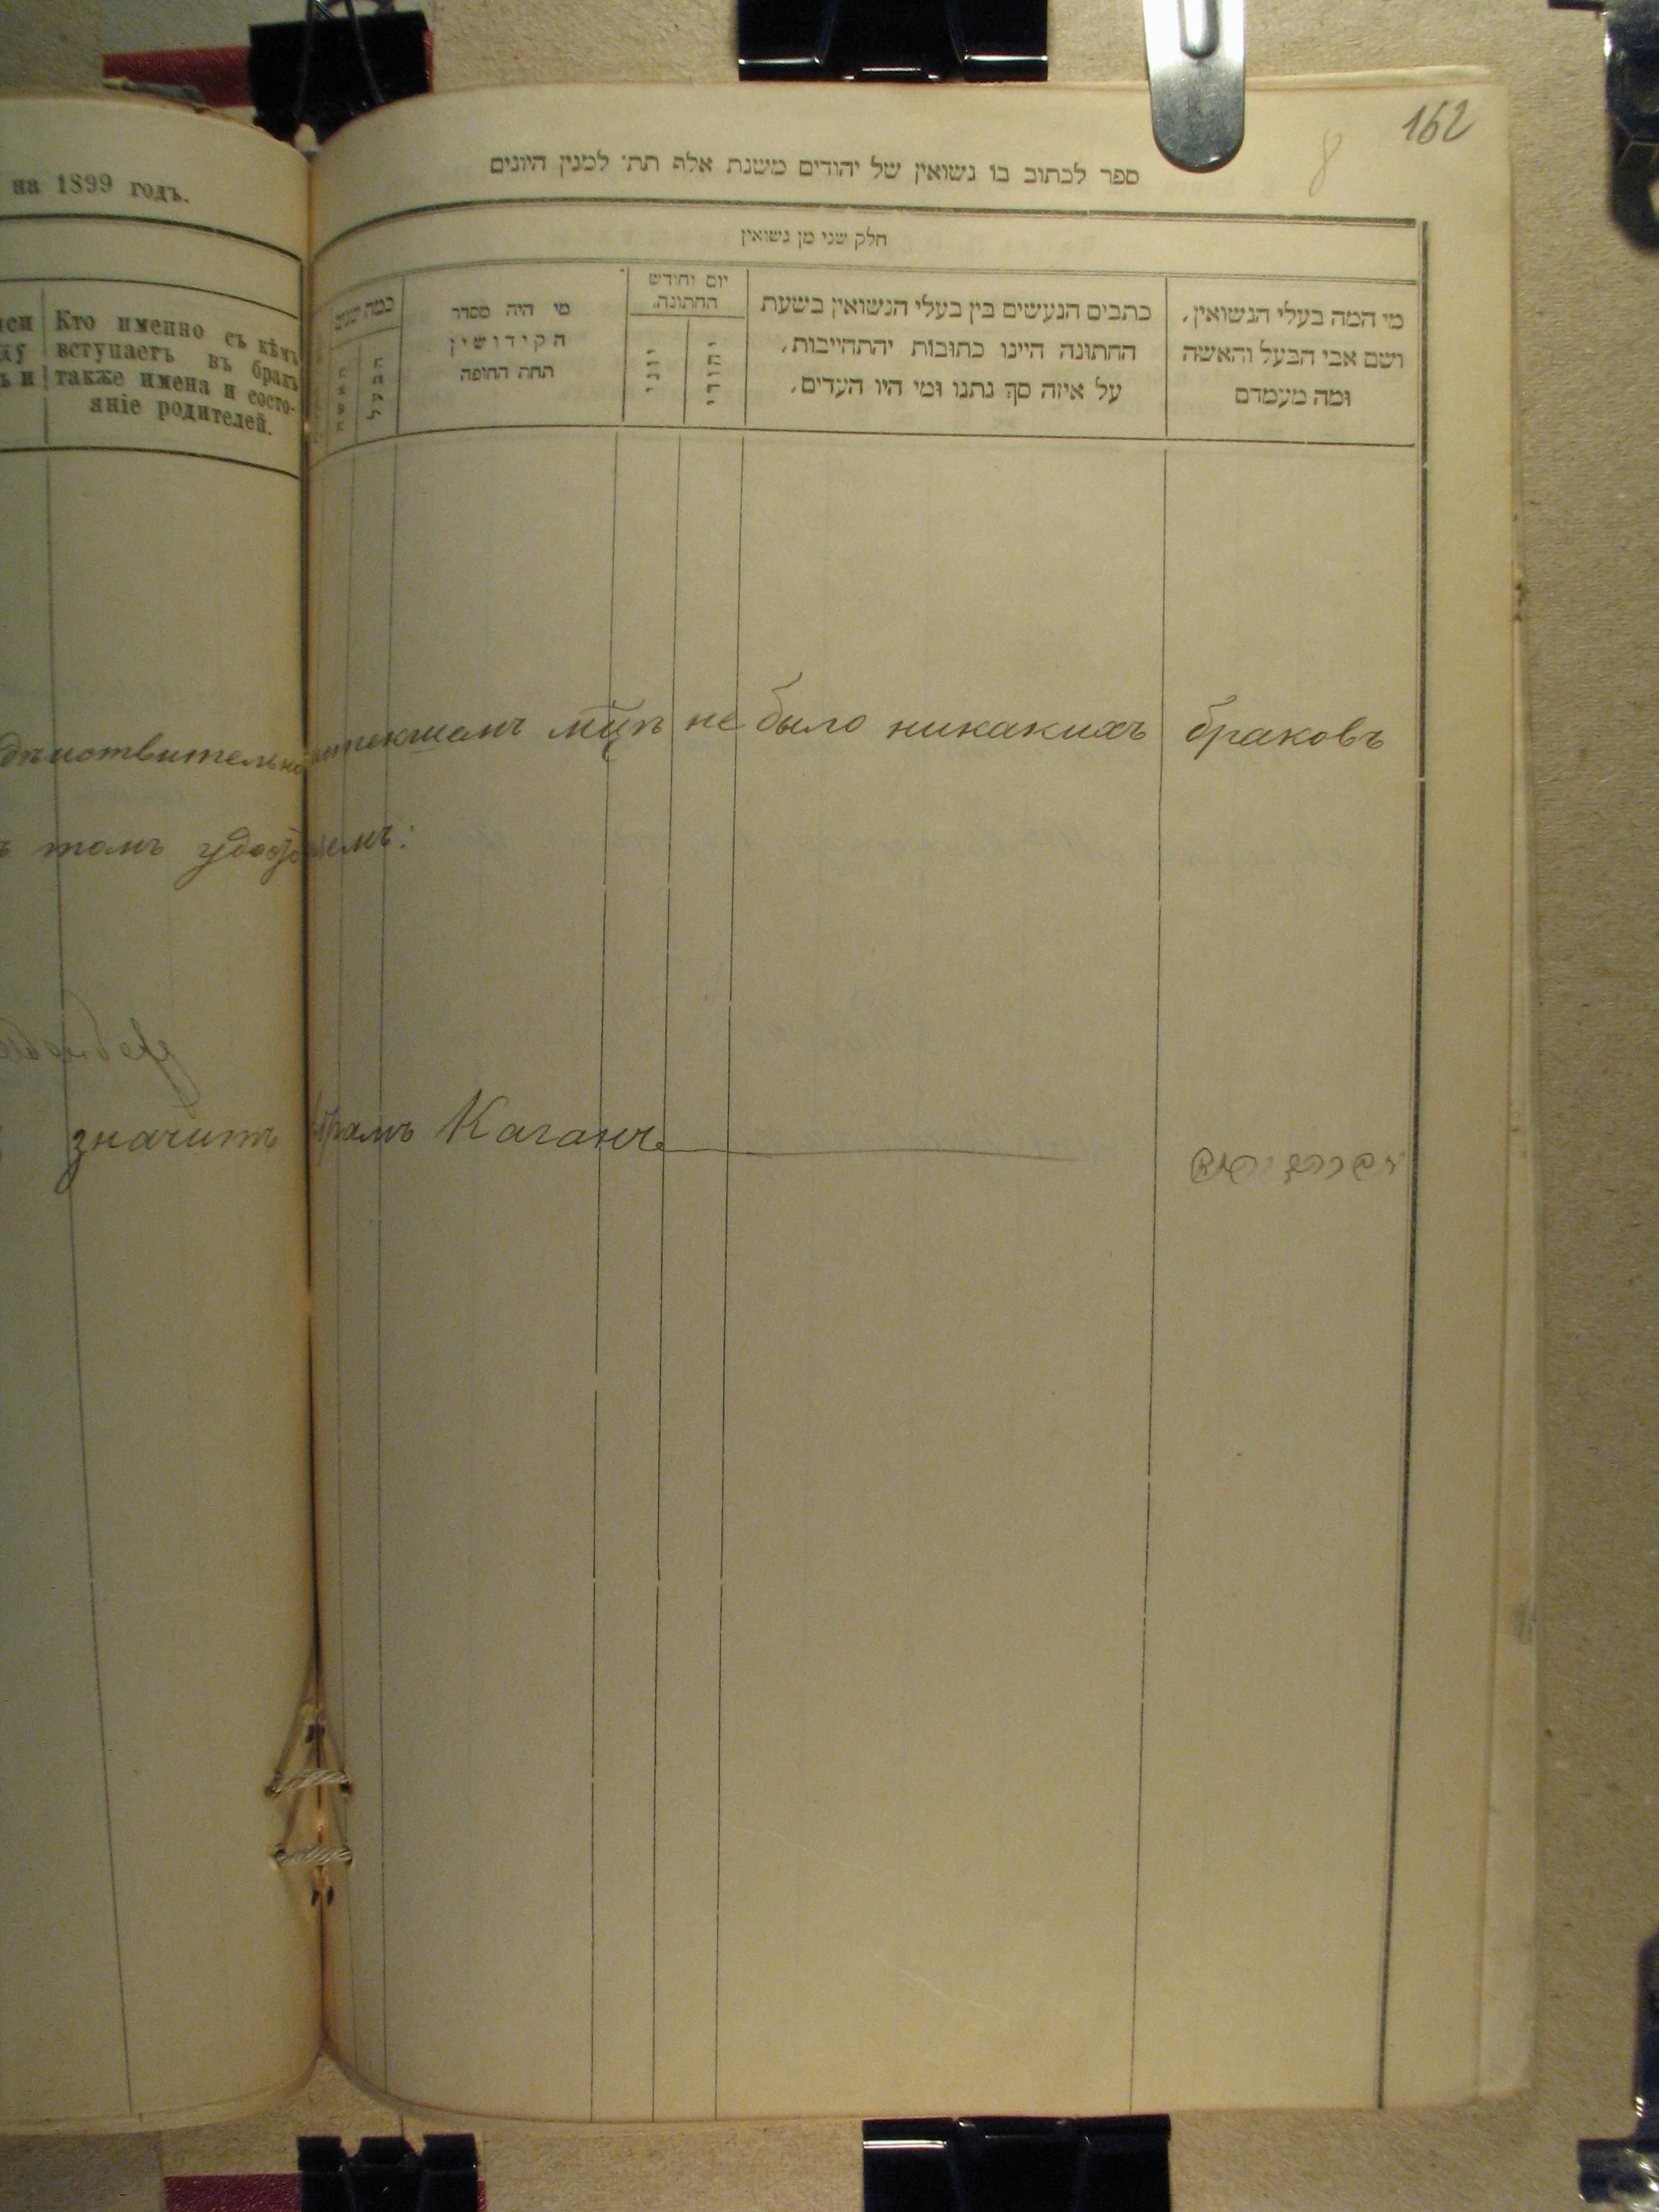 на 1899 годъ.
Кто именно съ кѣмъ
вступаетъ въ бракъ
также имена и состо-
яніе родителей.
162
8
ספר לכתוב בו נשואין של יהודים משנת אלף תת׳ למנין היונים
חלק שני מן נשואין
מי המה בעלי הנשואין,
ושם אבי הבעל והאשה
ומה מעמדם
כתבים הנעשים בין בעלי הנשואין בשעת
החתונה היינו כתובות יהתחייבות,
על איזה סך נתנו ומי היו העדים,
יום וחודש
החתונה
יהודי
יוני
מי היה מסדר
הקידושין
תחת החופה
כמה שנים
הבעל
האשה
не было никакихъ браковъ
томъ
значитъ Каганъ